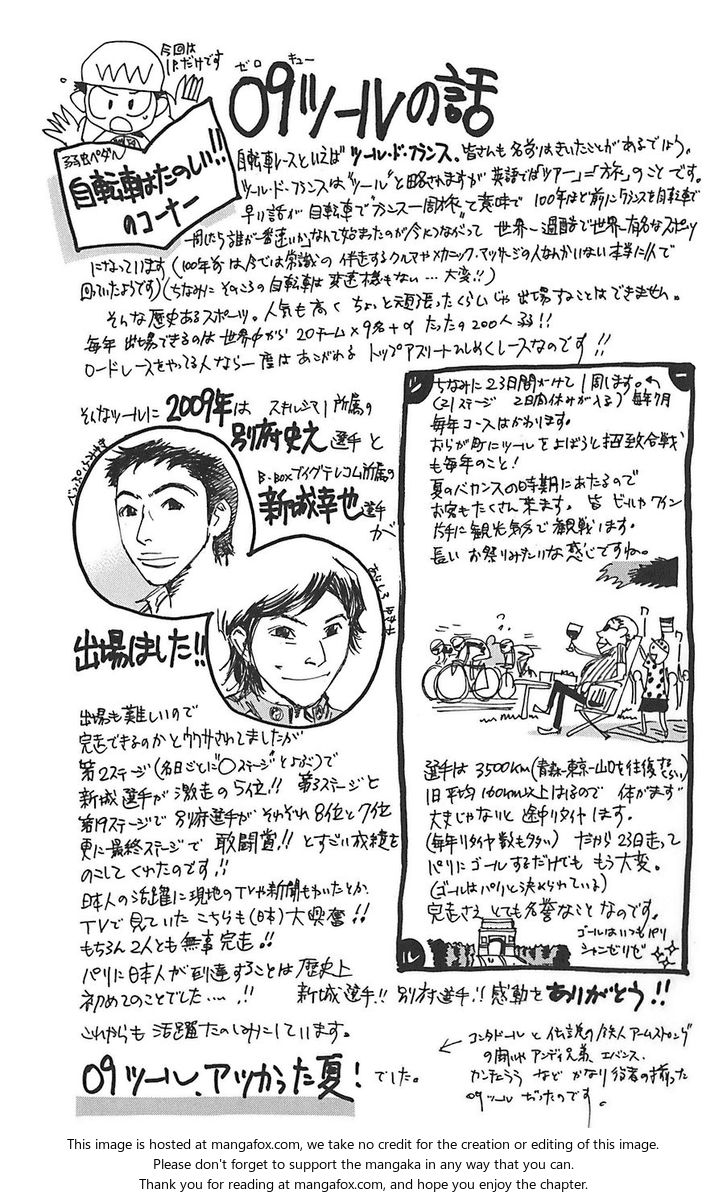 今回は
1P.だけです
ゼロ キュー
09ツールの話
弱虫ペダル
自転車はたのしい!!
のコーナー
自転車レースといえば ツール・ド・フランス。皆さんも名前はきいたことがあるでしょう。
ツール・ド・フランスは"ツール"と略されますが 英語では"ツアー"＝"旅"のことです。
早い話が 自転車で"フランス一周旅"って意味で 100年ほど前にフランスを自転車で
一周したら誰が一番速いか、なんて始まったのが今につながって 世界一過酷で世界一有名なスポーツ
になっています(100年前は今では常識の 伴走するクルマやメカニック・マッサージの人なんかいない 本当に1人で
回っていたようです)(ちなみに そのころの自転車は 変速機もない… 大変!!)
そんな歴史あるスポーツ。人気も高く ちょっと頑張ったくらいじゃ 出場することはできません。
毎年 出場できるのは 世界中から 20チーム×9名+α たったの200人弱!!
ロードレースをやってる人なら一度はあこがれる トップアスリートひしめくレースなのです!!
そんなツールに 2009年は スキル・シマノ所属の
別府史之選手と
べっぷふみゆき
B・BOXブイグテレコム所属の
新城幸也選手
が
あらしろ ゆきや
出場しました!!
出場も難しいので
完走できるのかとウワサされてましたが
第2ステージ(各日ごとに"○ステージ"とよぶ)で
新城選手が激走の5位!! 第3ステージと
第19ステージで 別府選手が それぞれ 8位と7位
更に最終ステージで 敢闘賞!! とすごい成績を
のこしてくれたのです!!
日本人の活躍に現地のTVや新聞もわいたとか、
TVで見ていた こちらも(日本)大興奮!!
もちろん2人とも無事完走!!
パリに日本人が到達することは歴史上
初めてのことでした….!!
新城選手!! 別府選手!! 感動を ありがとう!!
これからも 活躍たのしみにしています。
09ツール、アツかった夏! でした。
ツ
ー
ル
ちなみに23日間かけて1周します。
(21ステージ 2日間休みが入る)毎年7月
毎年コースはかわります。
おらが町にツールをよぼうと招致合戦
も毎年のこと!
夏のバカンスの時期にあたるので
お客もたくさん来ます。皆 ビールやワイン
片手に観光気分で観戦します。
長い お祭りみたいな感じですね。
選手は 3500km(青森-東京-山口を往復 )
1日平均160km以上はしるので 体が
丈夫じゃないと 途中リタイヤします。
(毎年リタイヤ数も多い) だから23日走って
パリにゴールするだけでも もう大変。
(ゴールはパリと決められている)
完走さえ とても名誉なことなのです。
ゴールはいつもパリ
シャンゼリゼ
← コンタドールと伝説の鉄人アームストロング
の闘いや アンディ兄弟、エバンス、
カンチェラーラ など かなり役者の揃った
09ツールだったのです。
This image is hosted at mangafox.com, we take no credit for the creation or editing of this image.
Please don't forget to support the mangaka in any way that you can.
Thank you for reading at mangafox.com, and hope you enjoy the chapter.